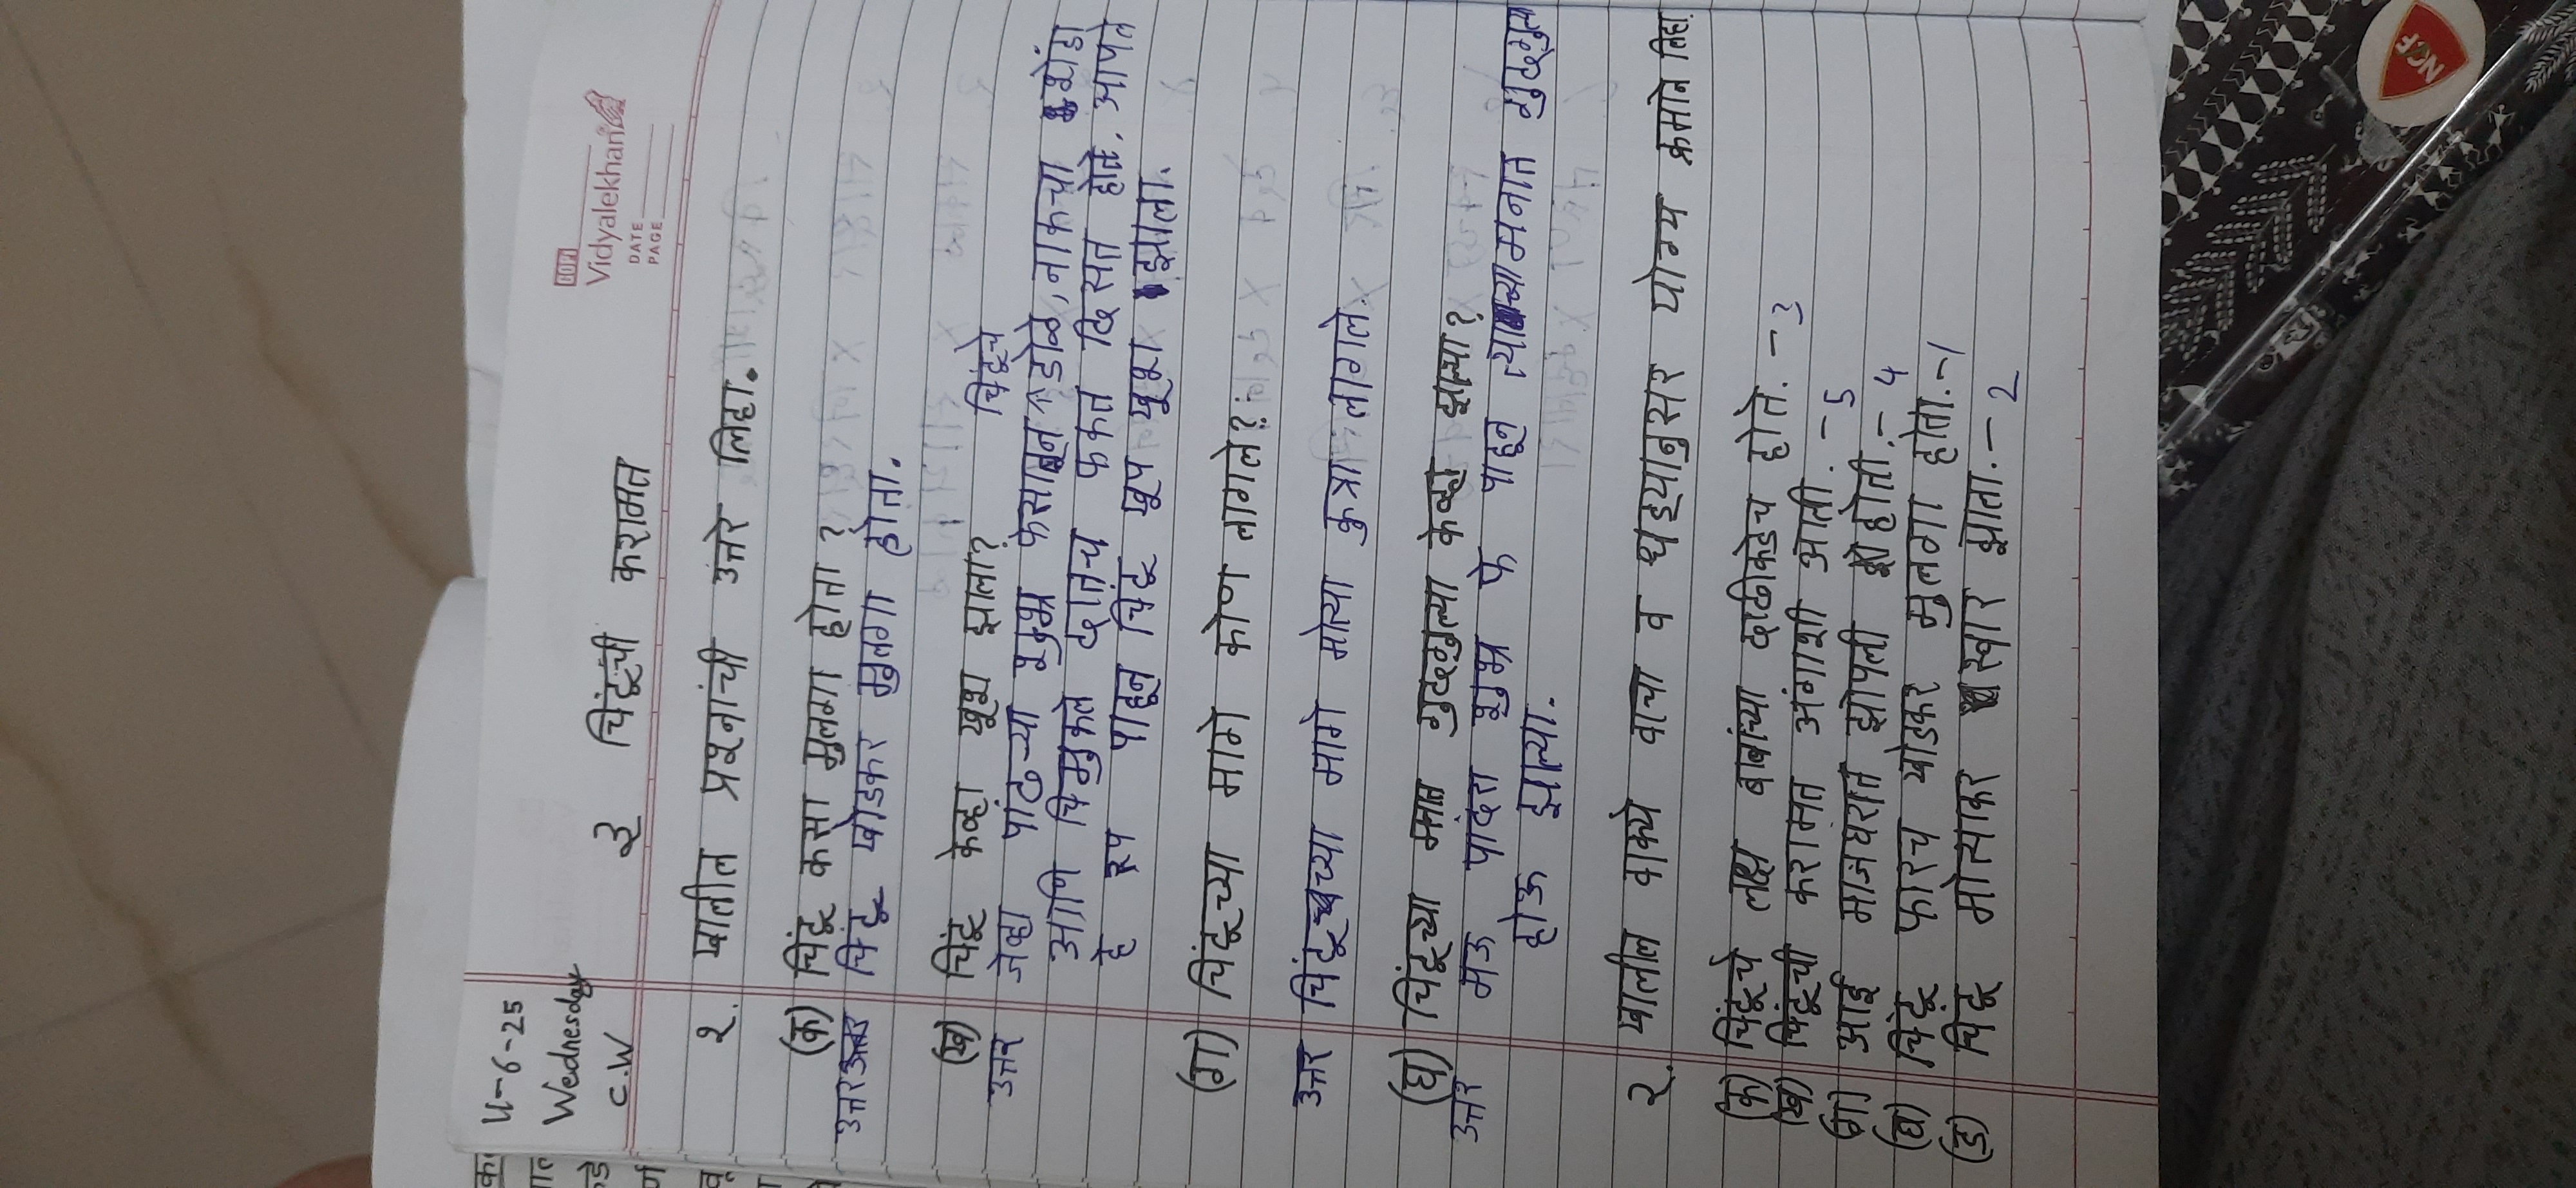 11-6-25
Wednesday
C.W
Vidyalekhan
DATE
PAGE
३ चिंटूची करामत
१. खालील प्रश्नांची उत्तरे लिहा.
(क) चिंटू कसा मुलगा होता?
उत्तर चिंटू खोडकर मुलगा होता.
(ख) चिंटू केव्हा खूश झाला?
चिंटूचे
उत्तर जेव्हा पांढऱ्या शुभ्र फेसातून डोळे, नाकाचा शेंडा
आणि चिमुकले दातच फक्त दिसत होते. आपले
हे रूप पाहून चिंटू खूप खूश झाला.
(ग) चिंटूच्या मागे कोण लागले?
उत्तर चिंटूच्या मागे मोत्या कुत्रा लागले.
(घ) चिंटूच्या मनात गुदगुल्या केव्हा झाल्या?
उत्तर मऊ पांढरा शुभ्र फे पाहून त्याच्या मनात गुदगुल्
होऊ झाल्या.
२. खालील वाक्ये वाचा व धड्यानुसार योग्य क्रमाने लिहा.
(क) चिंटूचे लक्ष बाबांच्या दाढीकडेच होते. - 3
(ख) चिंटूची करामत अंगाशी आली. - 5
(ग) आई माजघरात झोपली होती. - 4
(घ) चिंटू फारच खोडकर मुलगा होता. - 1
(ड) चिंटू मोत्यावर स्वार झाला. - 2
NCF